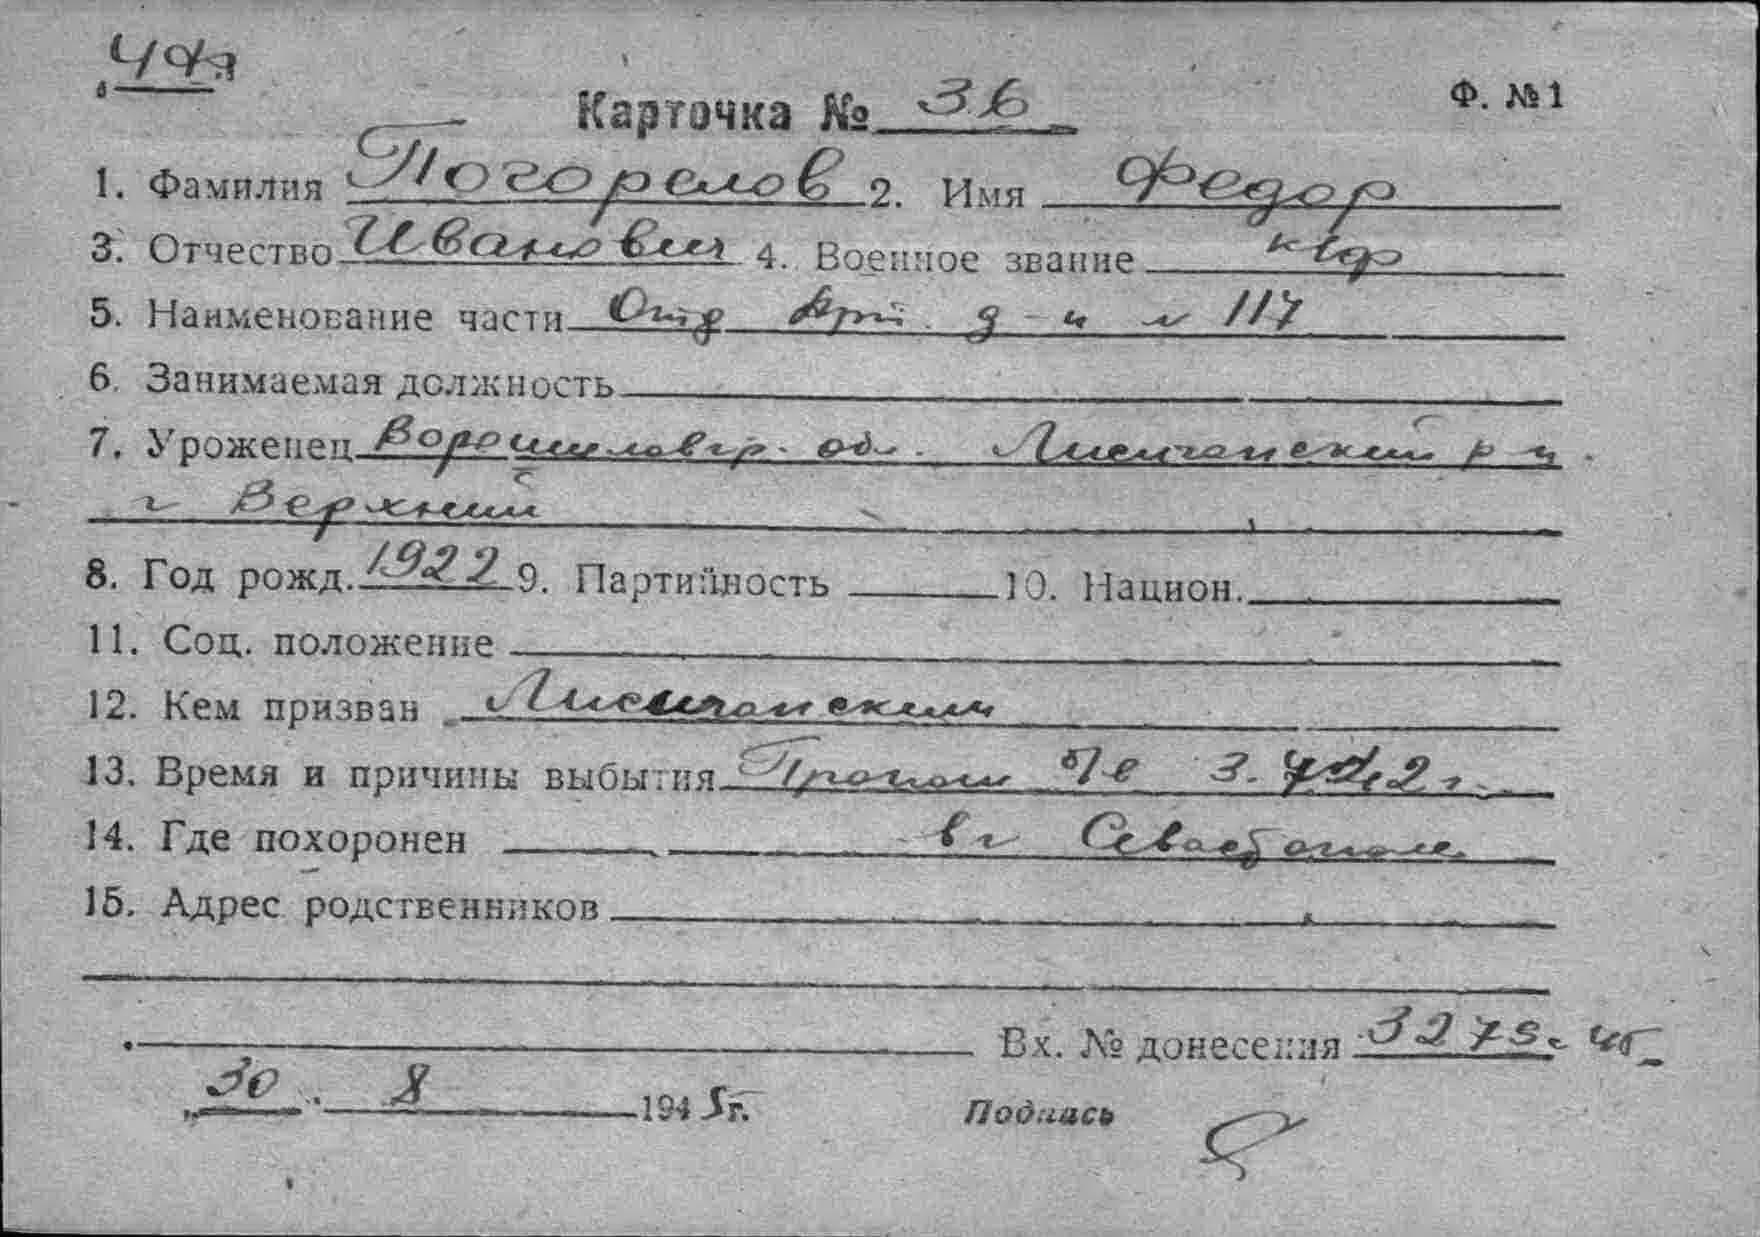 Карточка № 36 Ф. №1
1. Фамилия Погорелов 2. Имя Федор
3. Отчество Иванович 4. Военное звание к-ф
5. Наименование части Отд Арт. д-н № 117
6. Занимаемая должность
7. Уроженец Ворошиловгр. обл. Лисичанский р-н.
г Верхний
8. Год рожд. 1922 9. Партийность 10. Национ.
11. Соц. положение
12. Кем призван Лисичанским
13. Время и причины выбытия Пропал б/в 3.7.42г.
14. Где похоронен в г Севастополе
15. Адрес родственников
Вх. № донесения 3273с 45
30 8 1945г. Подпись